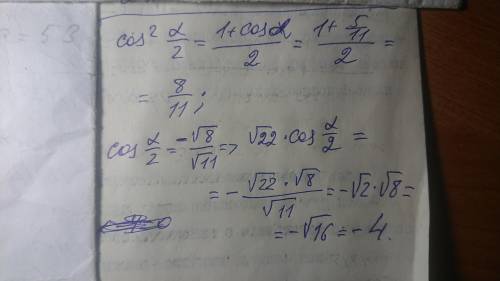 = 53
cos² α/2 = (1+cosα)/2 = (1+5/11)/2 =
= 8/11;
cos α/2 = -√8/√11 => √22 · cos α/2 =
= - (√22 · √8)/√11 = -√2 · √8 =
= -√16 = -4.